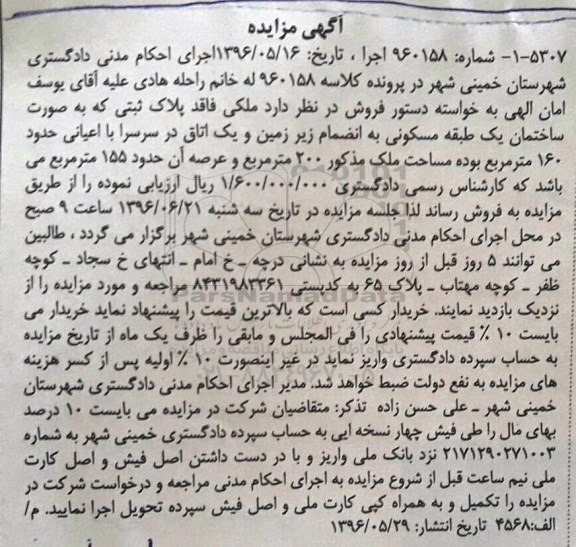 آگهی مزایده
۱-۵۳۰۷- شماره: ۹۶۰۱۵۸ اجرا ، تاریخ: ۱۳۹۶/۰۵/۱۶اجرای احکام مدنی دادگستری
شهرستان خمینی شهر در پرونده کلاسه ۹۶۰۱۵۸ له خانم راحله هادی علیه آقای یوسف
امان الهی به خواسته دستور فروش در نظر دارد ملکی فاقد پلاک ثبتی که به صورت
ساختمان یک طبقه مسکونی به انضمام زیر زمین و یک اتاق در سرسرا با اعیانی حدود
۱۶۰ مترمربع بوده مساحت ملک مذکور ۲۰۰ مترمربع و عرصه آن حدود ۱۵۵ مترمربع می
باشد که کارشناس رسمی دادگستری ۱/۶۰۰/۰۰۰/۰۰۰ ریال ارزیابی نموده را از طریق
مزایده به فروش رساند لذا جلسه مزایده در تاریخ سه شنبه ۱۳۹۶/۰۶/۲۱ ساعت ۹ صبح
در محل اجرای احکام مدنی دادگستری شهرستان خمینی شهر برگزار می گردد ، طالبین
می توانند ۵ روز قبل از روز مزایده به نشانی درچه ـ خ امام ـ انتهای خ سجاد ـ کوچه
ظفر ـ کوچه مهتاب ـ پلاک ۶۵ به کدپستی ۸۴۳۱۹۸۳۳۶۱ مراجعه و مورد مزایده را از
نزدیک بازدید نمایند. خریدار کسی است که بالاترین قیمت را پیشنهاد نماید خریدار می
بایست ۱۰ ٪ قیمت پیشنهادی را فی المجلس و مابقی را ظرف یک ماه از تاریخ مزایده
به حساب سپرده دادگستری واریز نماید در غیر اینصورت ۱۰ ٪ اولیه پس از کسر هزینه
های مزایده به نفع دولت ضبط خواهد شد. مدیر اجرای احکام مدنی دادگستری شهرستان
خمینی شهر ـ علی حسن زاده تذکر: متقاضیان شرکت در مزایده می بایست ۱۰ درصد
بهای مال را طی فیش چهار نسخه ایی به حساب سپرده دادگستری خمینی شهر به شماره
۲۱۷۱۲۹۰۲۷۱۰۰۳ نزد بانک ملی واریز و با در دست داشتن اصل فیش و اصل کارت
ملی نیم ساعت قبل از شروع مزایده به اجرای احکام مدنی مراجعه و درخواست شرکت در
مزایده را تکمیل و به همراه کپی کارت ملی و اصل فیش سپرده تحویل اجرا نمایید. م/
الف:۴۵۶۸ تاریخ انتشار: ۱۳۹۶/۰۵/۲۹
ParsNamadData